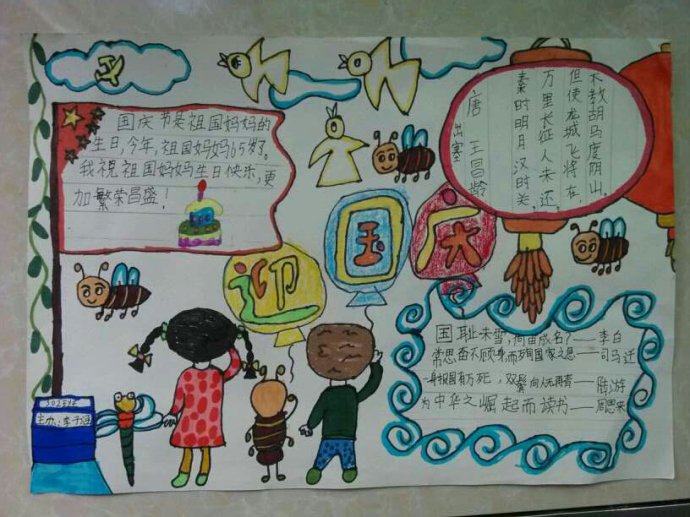 国庆节是祖国妈妈的
生日,今年,祖国妈妈65岁了。
我祝祖国妈妈生日快乐,更
加繁荣昌盛!
唐 王昌龄
出塞
秦时明月汉时关。
万里长征人未还。
但使龙城飞将在,
不教胡马度阴山。
迎国庆
国耻未雪,何由成名?——李白
常思奋不顾身,而殉国家之急——司马迁
一身报国有万死,双鬓向人无再青——陆游
为中华之崛起而读书——周恩来
主办:李子